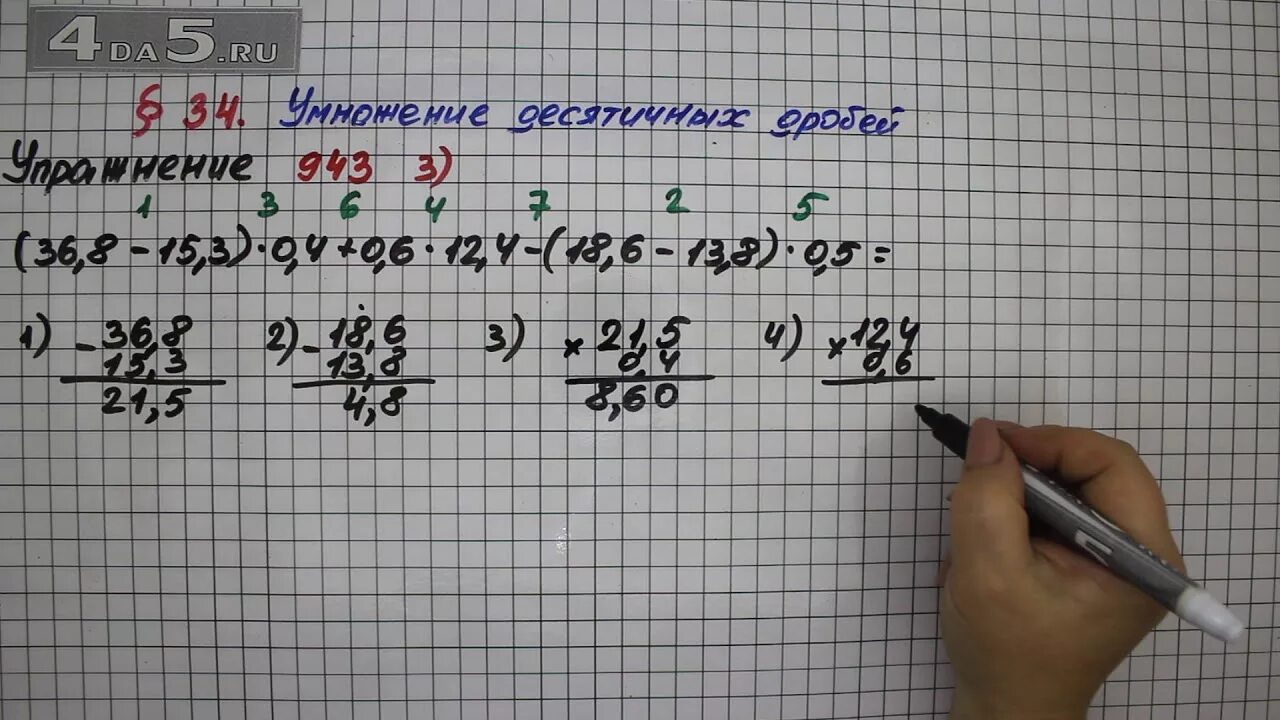 4DA5.RU
§ 34. Умножение десятичных дробей
Упражнение 943 3)
1 3 6 4 7 2 5
(36,8 - 15,3) · 0,4 + 0,6 · 12,4 - (18,6 - 13,8) · 0,5 =
1) - 36,8 2) - 18,6 3) × 21,5 4) × 12,4
15,3 13,8 0,4 0,6
21,5 4,8 8,60